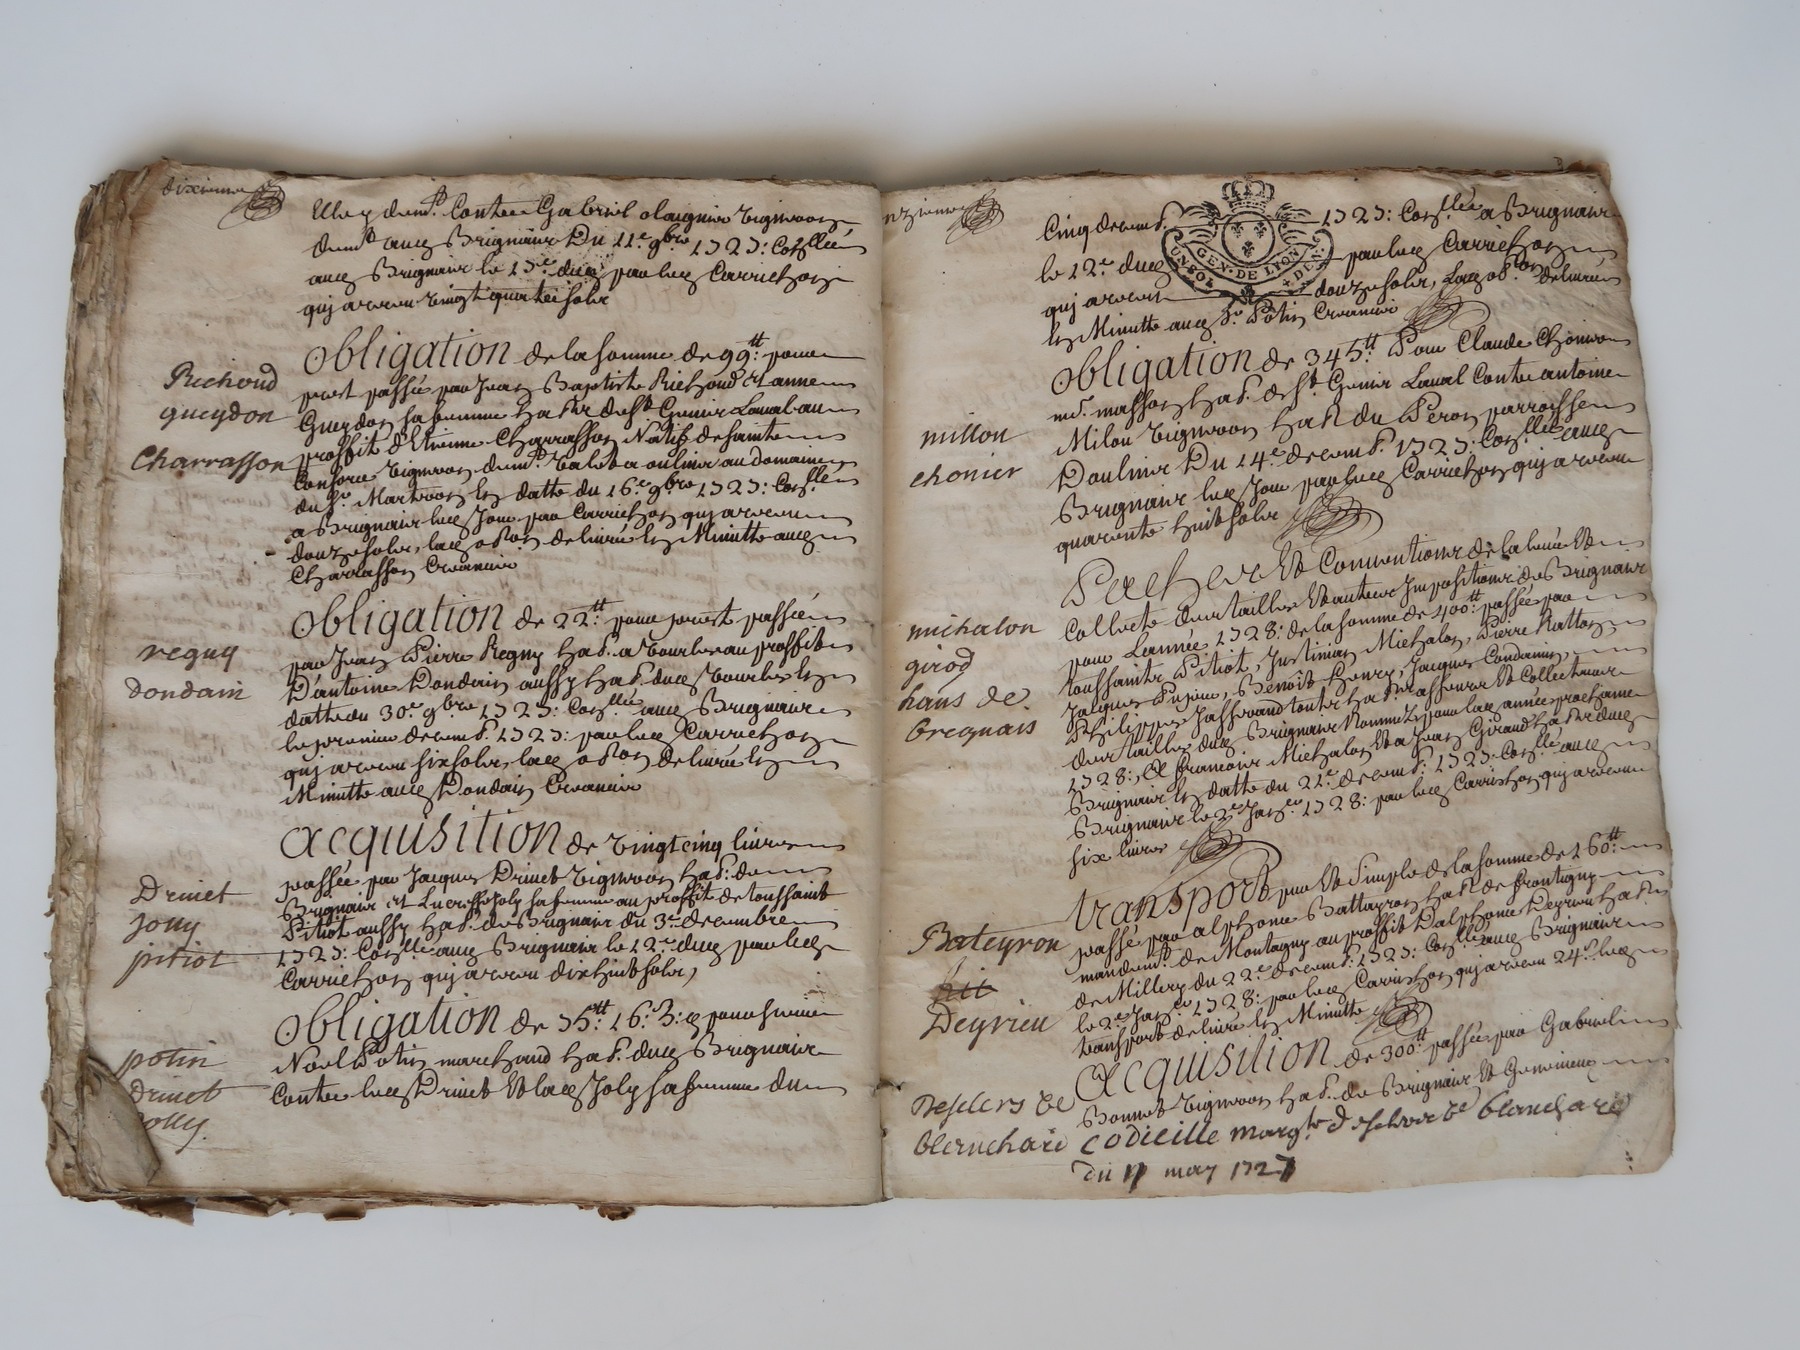 dixieme
demt. Contre Gabriel
dud. Brignaix Du 11e. 9bre 1727: Conllé
aud. Brignaix le 13e. dud. par led. Carrichon
quj a receu vingt quatre sols
Richoud
gueydon
Charrasson
obligation de la somme de 99tt: pour
prest passée par Jean Baptiste Richoud et anne
Gueydon sa femme habts de St Genis Laval au
proffit d'Etienne Charrasson Natif de Sainte
Consorce vigneron demt.
du Sr. en datte du 16e. 9bre 1727: Conllé
a Brignaix led. Jour par Carrichon quj a receu
douze sols, lad. obon. delivrée en Minutte aud.
Charrasson Creancier
reguy
dondain
obligation de 22tt: pour prest passée
par Jean Pierre Regny habt. a Vourles au proffit
D'antoine Dondain aussy habt. dud. Vourles en
datte du 30e. 9bre 1727: Conllé aud. Brignaix
le premier decemb. 1727: par led. Carrichon
quj a receu six sols, lad. obon. delivrée en
Minutte aud. Dondain Creancier
Drivet
jolly
pitiot
acquisition de vingt cinq livres
passée par Jacques Drivet vigneron habt. de
Brignaix et Lucresse Joly sa femme au proffit de toussaint
Pitiot aussy habt. de Brignaix du 3e. decembre
1727: Conllé aud. Brignaix le 12e. dud. par led.
Carrichon quj a receu dix huit sols,
potin
drivet
jolly.
obligation de 35tt: 16: 3: pour sieur
Noel Potin marchand habt. dud. Brignaix
Contre led. Drivet et lad. Joly sa femme du
onzieme
Cinq decemb. 1727: Conllée a Brignaix
le 12e. dud. par led. Carrichon
GEN. DE LYON
quj a receu douze sols, lad. obon. delivrée
en Minutte aud. Sr. Potin Creancier
millon
chonier
obligation de 345tt: Pour Claude
me. masson habt. de St. Genis Laval Contre antoine
Milon vigneron habt. du Peron parroisse
Doulins Du 14e. decemb. 1727: Conllée aud.
Brignaix led. Jour par led. Carrichon quj a receu
quarente huit sols
michalon
girod
hans de
breqnais
et Conventions de la levée et
Collecte des tailles et autres Impositions de Brignaix
pour L'année 1728: de la somme de 400tt: passée par
toussaints Pitiot, Justinien Michalon, Pierre Ratton
Jacques Benoit Henry, Jacques Condamin,
Philippe Jasserand touts habts asseeurs et Collecteurs
des tailles dud. Brignaix Nommez pour lad. année prochaine
1728:, a francois Michalon et a Jean Giraud habts dud.
Brignaix en datte du 21e. decemb: 1727: Conllé aud.
Brignaix le 2e Janer. 1728: par led. Carrichon quj a receu
six livres
Bateyron
Deyrieu
transport pur et simple de la somme de 160tt:
passé par alphonce Battayron habt. de frontigny
mandemt. de Montagny au proffit D'alphonce Deyrieu habt.
de Millery du 22e. decemb: 1727: Conllé aud. Brignaix
le 2e. Janer. 1728: par led. Carrichon quj a receu 24s. led.
transport delivré en Minutte
acquisition de 300tt passée par Gabriel
Bonnet vigneron habt. de Brignaix et
blanchard codicille ve blanchard
du may 1727